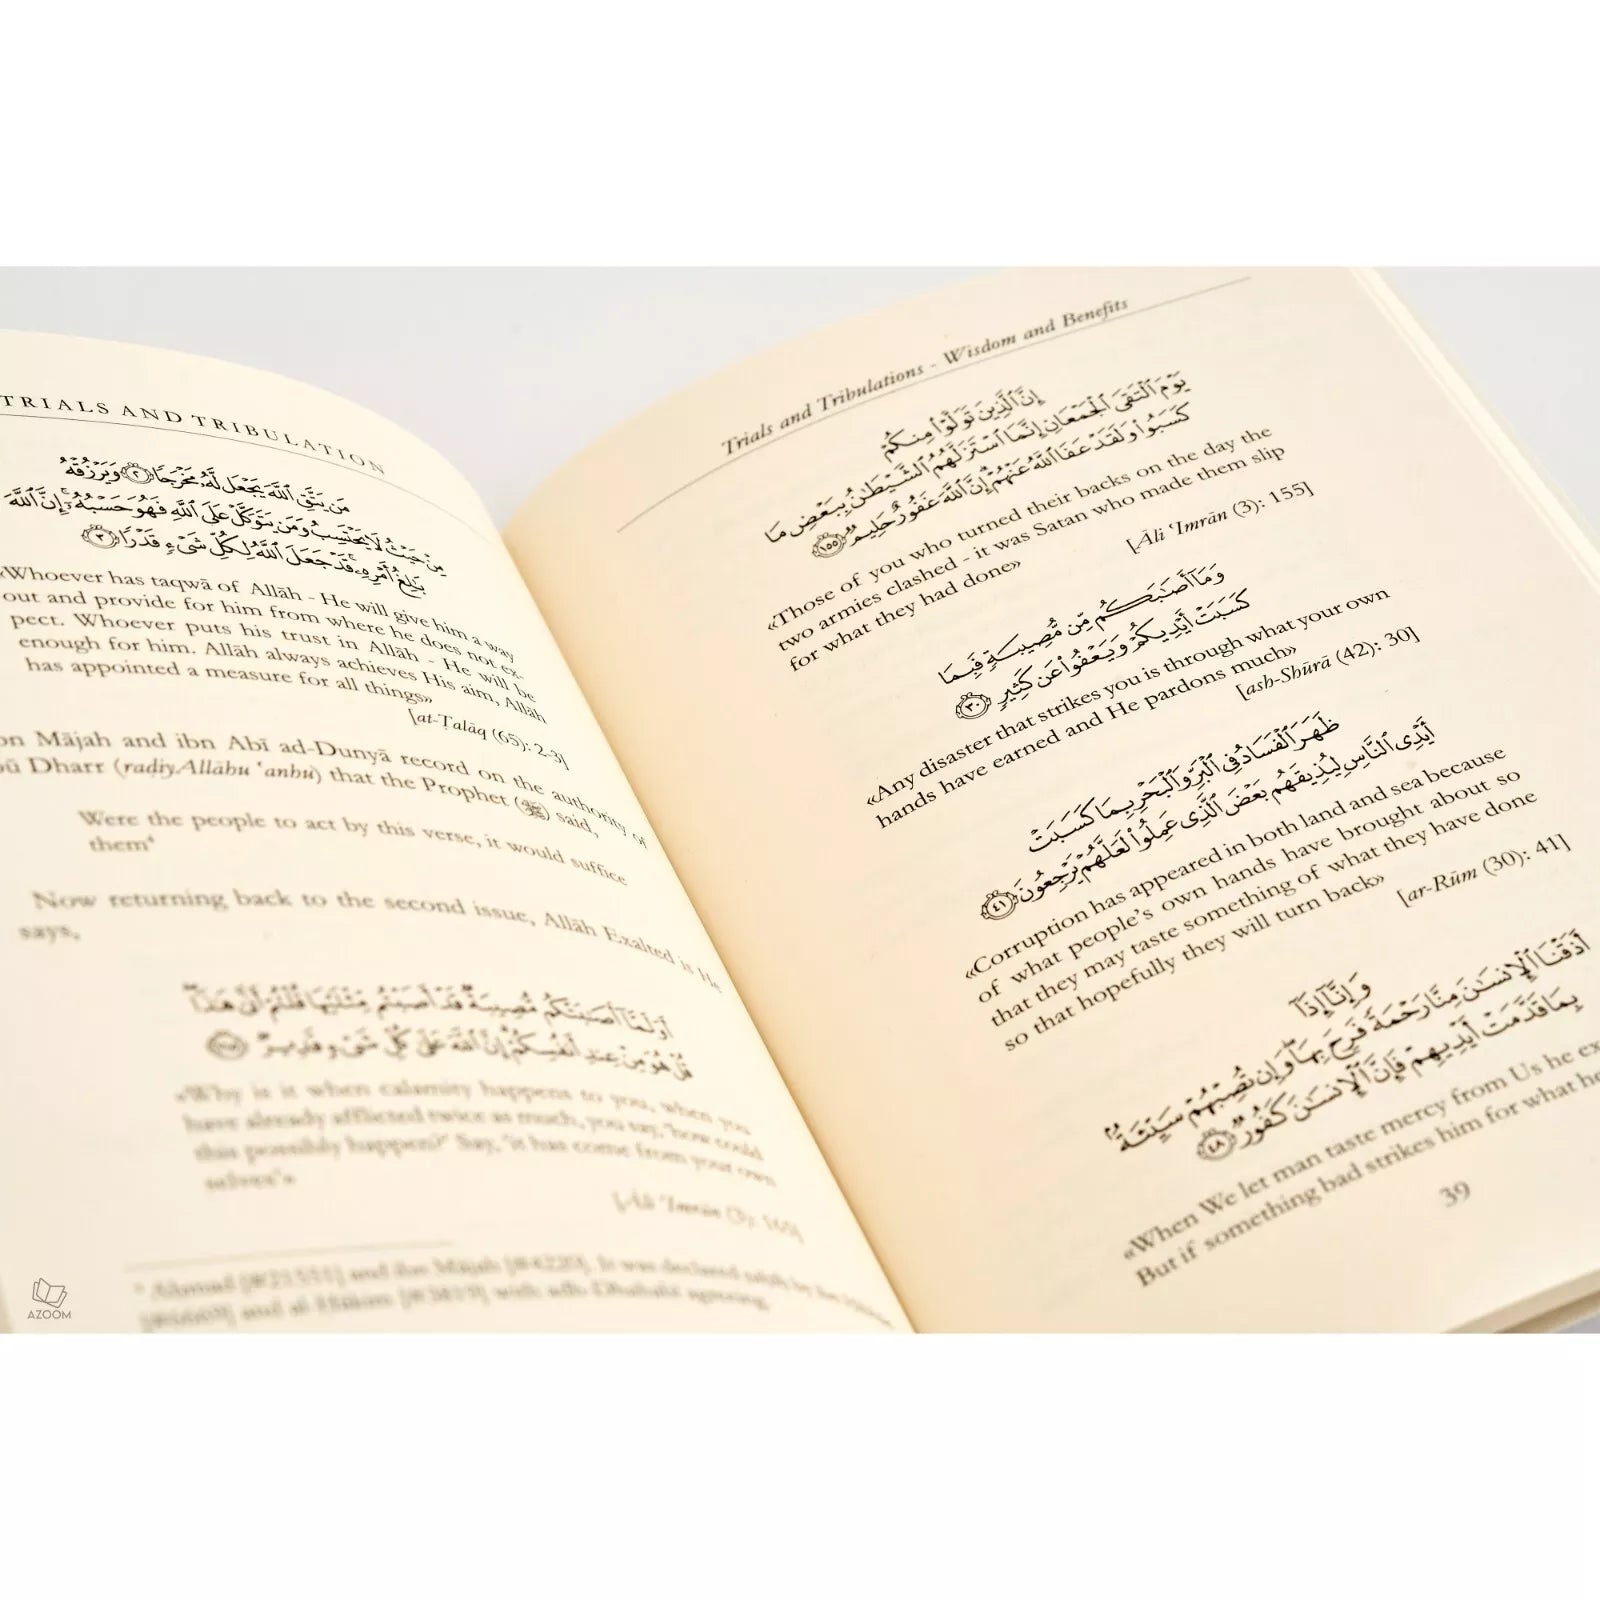 TRIALS AND TRIBULATION
مَن يَتَّقِ ٱللَّهَ يَجْعَل لَّهُۥ مَخْرَجًا ٢ وَيَرْزُقْهُ
مِنْ حَيْثُ لَا يَحْتَسِبُ وَمَن يَتَوَكَّلْ عَلَى ٱللَّهِ فَهُوَ حَسْبُهُۥٓ إِنَّ ٱللَّهَ
بَٰلِغُ أَمْرِهِۦ قَدْ جَعَلَ ٱللَّهُ لِكُلِّ شَىْءٍ قَدْرًا ٣
«Whoever has taqwā of Allāh - He will give him a way
out and provide for him from where he does not ex-
pect. Whoever puts his trust in Allāh - He will be
enough for him. Allāh always achieves His aim, Allāh
has appointed a measure for all things»
[at-Ṭalāq (65): 2-3]
Mājah and ibn Abī ad-Dunyā record on the authority of
Dharr (raḍiyAllāhu ‘anhu) that the Prophet (ﷺ) said,
Were the people to act by this verse, it would suffice
them⁴
Now returning back to the second issue, Allāh Exalted is He
says,
أَوَلَمَّآ أَصَٰبَتْكُم مُّصِيبَةٌ قَدْ أَصَبْتُم مِّثْلَيْهَا قُلْتُمْ أَنَّىٰ هَٰذَا
قُلْ هُوَ مِنْ عِندِ أَنفُسِكُمْ إِنَّ ٱللَّهَ عَلَىٰ كُلِّ شَىْءٍ قَدِيرٌ
«Why is it when calamity happens to you, when you
have already afflicted twice as much, you say, ‘how could
this possibly happen?’ Say, ‘it has come from your own
selves’»
[Āli ‘Imrān (3): 165]
and ibn Mājah [#4220]. It was declared ṣaḥīḥ by ibn
and al-Ḥākim with adh-Dhahabī agreeing.
AZOOM
Trials and Tribulations - Wisdom and Benefits
إِنَّ ٱلَّذِينَ تَوَلَّوْا۟ مِنكُمْ
يَوْمَ ٱلْتَقَى ٱلْجَمْعَانِ إِنَّمَا ٱسْتَزَلَّهُمُ ٱلشَّيْطَٰنُ بِبَعْضِ مَا
كَسَبُوا۟ وَلَقَدْ عَفَا ٱللَّهُ عَنْهُمْ إِنَّ ٱللَّهَ غَفُورٌ حَلِيمٌ ١٥٥
«Those of you who turned their backs on the day the
two armies clashed - it was Satan who made them slip
for what they had done»
[Āli ‘Imrān (3): 155]
وَمَآ أَصَٰبَكُم مِّن مُّصِيبَةٍ فَبِمَا
كَسَبَتْ أَيْدِيكُمْ وَيَعْفُوا۟ عَن كَثِيرٍ ٣٠
«Any disaster that strikes you is through what your own
hands have earned and He pardons much»
[ash-Shūrā (42): 30]
ظَهَرَ ٱلْفَسَادُ فِى ٱلْبَرِّ وَٱلْبَحْرِ بِمَا كَسَبَتْ
أَيْدِى ٱلنَّاسِ لِيُذِيقَهُم بَعْضَ ٱلَّذِى عَمِلُوا۟ لَعَلَّهُمْ يَرْجِعُونَ ٤١
«Corruption has appeared in both land and sea because
of what people’s own hands have brought about so
that they may taste something of what they have done
so that hopefully they will turn back»
[ar-Rūm (30): 41]
وَإِنَّآ إِذَآ
أَذَقْنَا ٱلْإِنسَٰنَ مِنَّا رَحْمَةً فَرِحَ بِهَا وَإِن تُصِبْهُمْ سَيِّئَةٌۢ
بِمَا قَدَّمَتْ أَيْدِيهِمْ فَإِنَّ ٱلْإِنسَٰنَ كَفُورٌ ٤٨
«When We let man taste mercy from Us he ex
But if something bad strikes him for what he
39